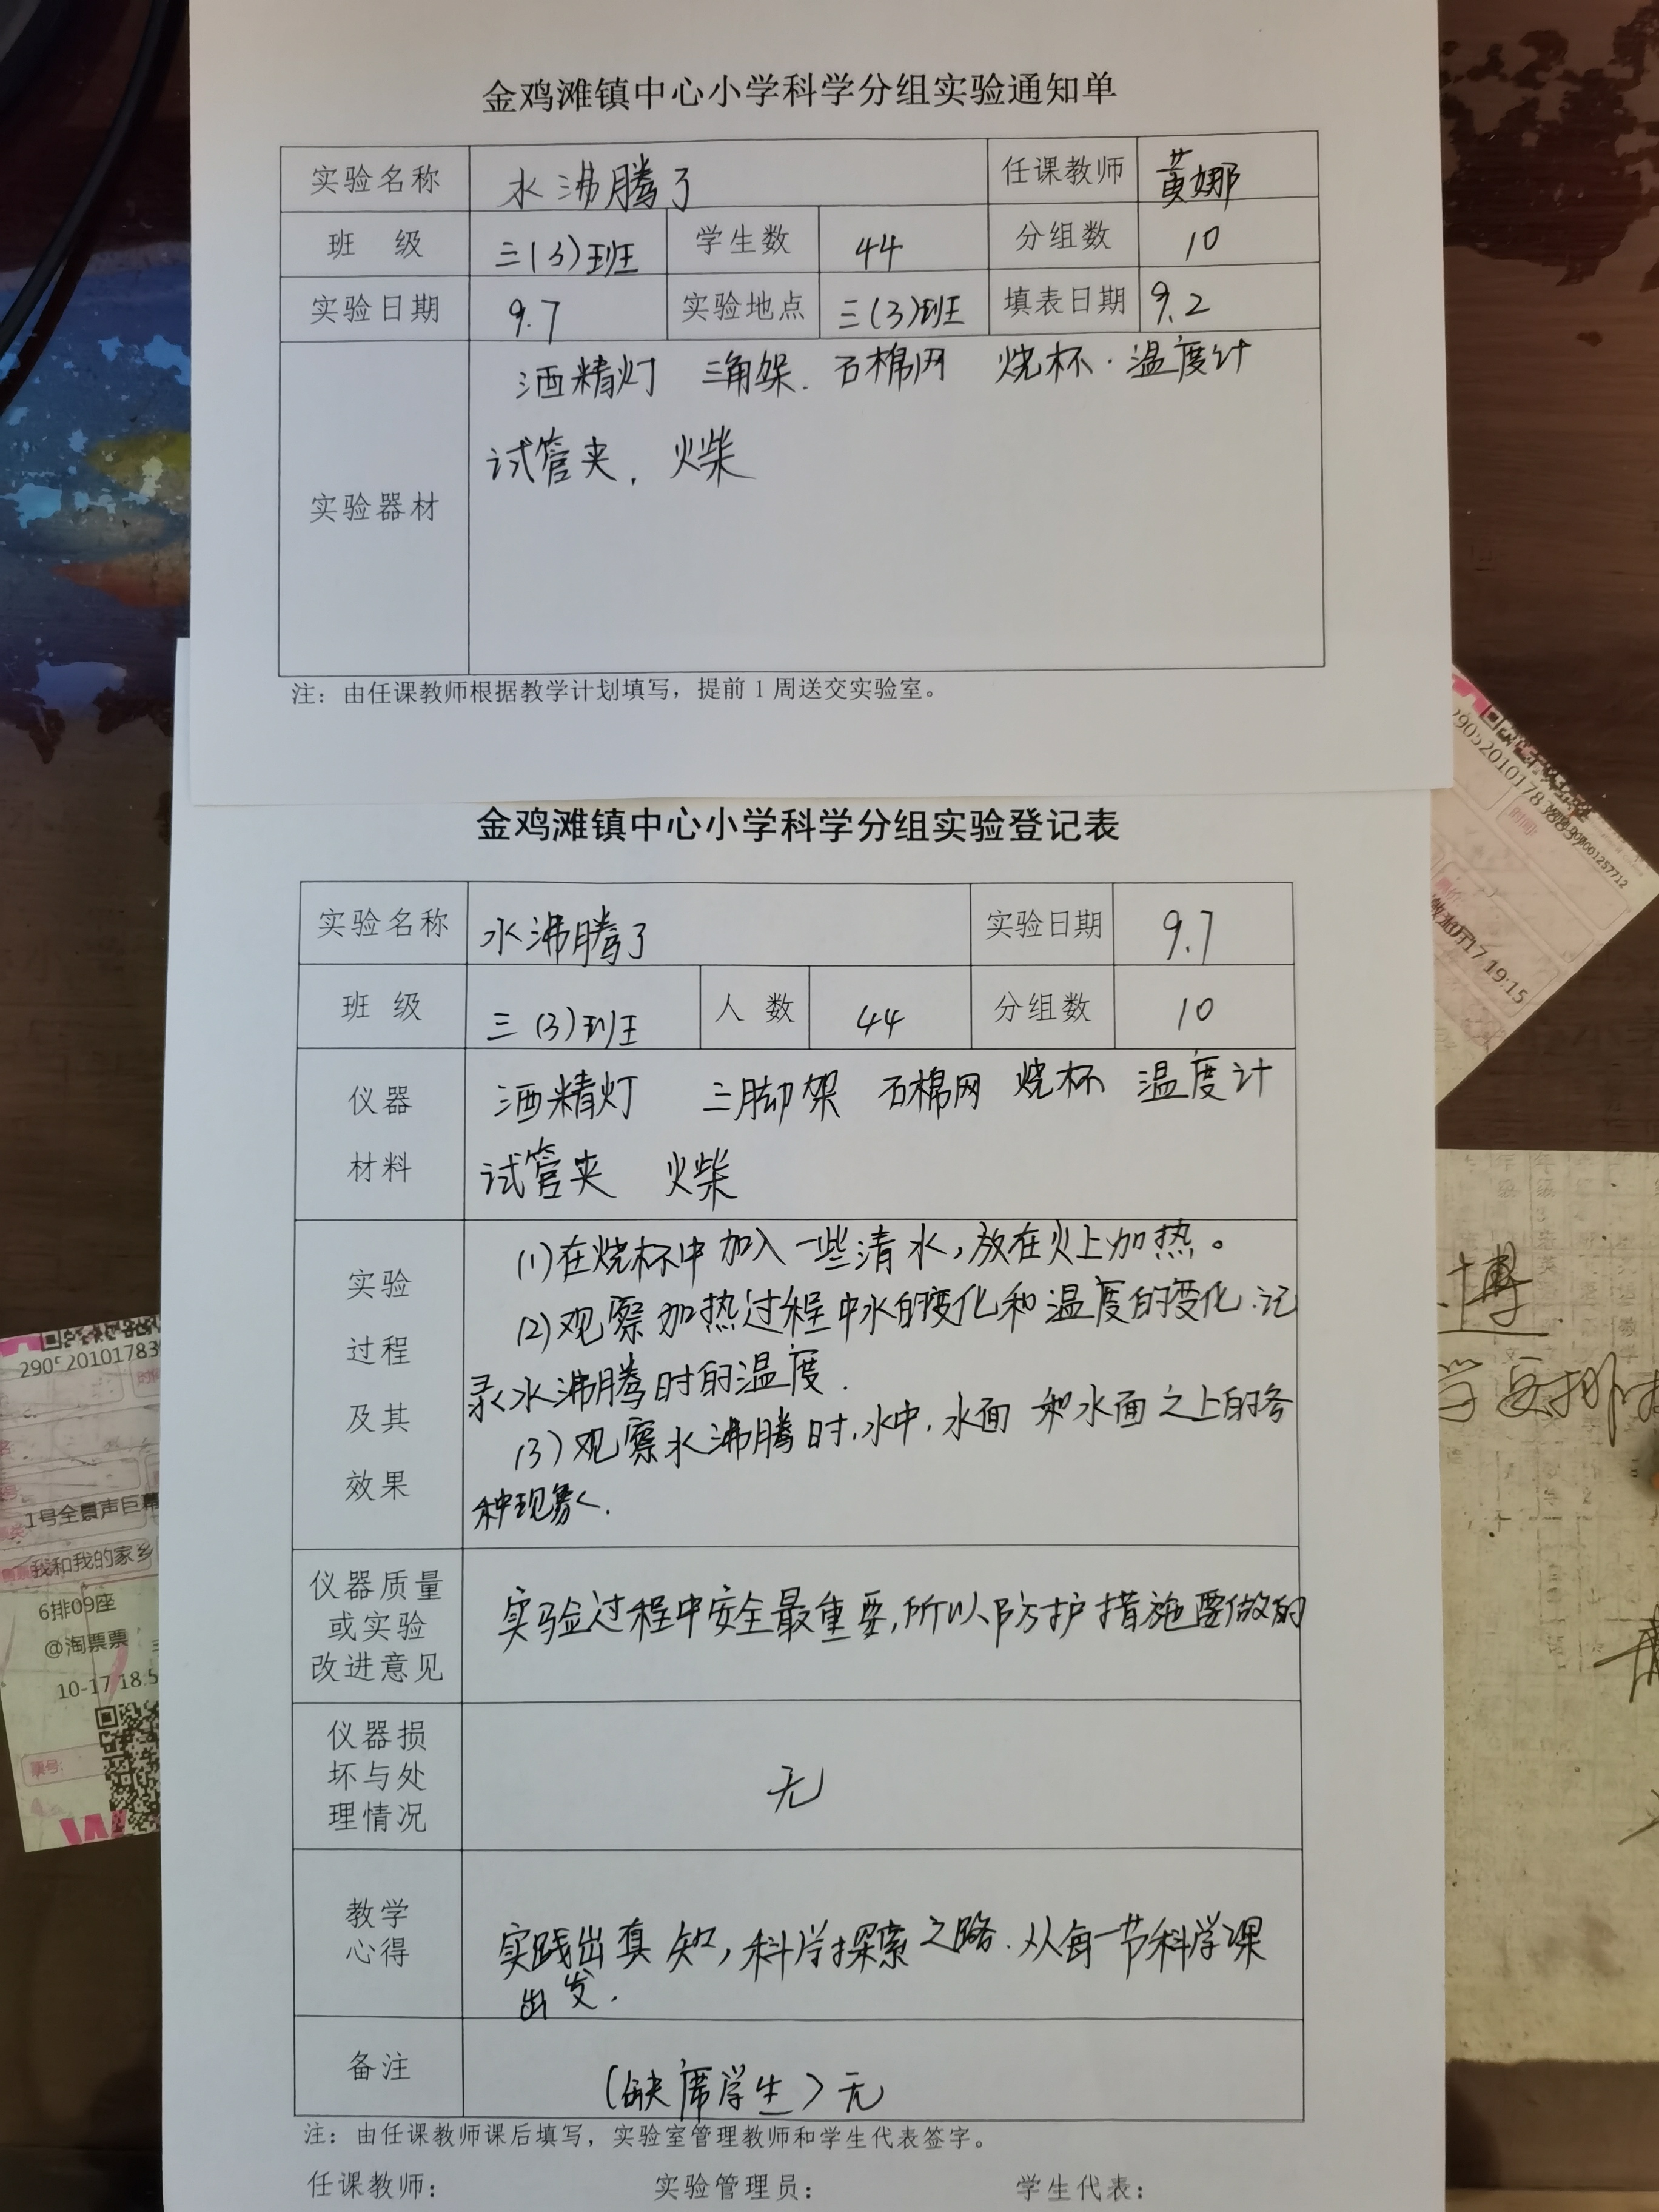 金鸡滩镇中心小学科学分组实验通知单
实验名称 水沸腾了 任课教师 黄娜
班 级 三(3)班 学生数 44 分组数 10
实验日期 9.7 实验地点 三(3)班 填表日期 9.2
实验器材
酒精灯 三角架. 石棉网 烧杯. 温度计
试管夹, 火柴
注：由任课教师根据教学计划填写，提前1周送交实验室。
金鸡滩镇中心小学科学分组实验登记表
实验名称 水沸腾了 实验日期 9.7
班 级 三(3)班 人 数 44 分组数 10
仪器
材料
酒精灯 三脚架 石棉网 烧杯 温度计
试管夹 火柴
实验
过程
及其
效果
(1)在烧杯中加入一些清水,放在火上加热。
(2)观察加热过程中水的变化和温度的变化.记
录水沸腾时的温度.
(3)观察水沸腾时,水中,水面和水面之上的各
种现象.
仪器质量
或实验
改进意见
实验过程中安全最重要,所以防护措施要做的
仪器损
坏与处
理情况
无
教学
心得
实践出真知,科学探索之路.从每一节科学课
出发.
备注
(缺席学生)无
注：由任课教师课后填写，实验室管理教师和学生代表签字。
任课教师： 实验管理员： 学生代表：
1号全景声巨幕
我和我的家乡
6排09座
@淘票票
10-17 18:5
票号:
17 19:15